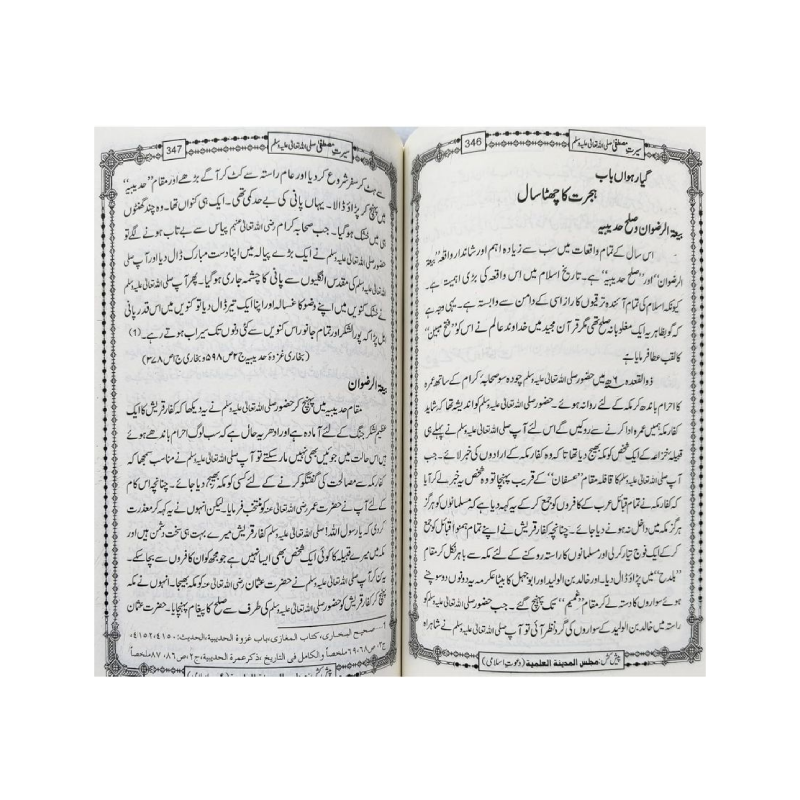 346
سیرتِ مصطفیٰ صلی اللہ تعالیٰ علیہ وسلم
گیارہواں باب
ہجرت کا چھٹا سال
بیعۃ الرضوان و صلح حدیبیہ
اس سال کے تمام واقعات میں سب سے زیادہ اہم اور شاندار واقعہ "بیعۃ
الرضوان" اور "صلح حدیبیہ" ہے۔ تاریخ اسلام میں اس واقعہ کی بڑی اہمیت ہے۔
کیونکہ اسلام کی تمام آئندہ ترقیوں کا راز اسی کے دامن سے وابستہ ہے۔ یہی وجہ ہے
کہ گو بظاہر یہ ایک مغلوبانہ صلح تھی مگر قرآن مجید میں خداوند عالم نے اس کو "فتح مبین"
کا لقب عطا فرمایا ہے
ذوالقعدہ ۶ھ میں حضور صلی اللہ تعالیٰ علیہ وسلم چودہ سو صحابہ کرام کے ساتھ عمرہ
کا احرام باندھ کر مکہ کے لئے روانہ ہوئے۔ حضور صلی اللہ تعالیٰ علیہ وسلم کو اندیشہ تھا کہ شاید
کفار مکہ ہمیں عمرہ ادا کرنے سے روکیں گے اس لئے آپ صلی اللہ تعالیٰ علیہ وسلم نے پہلے ہی
قبیلہ خزاعہ کے ایک شخص کو مکہ بھیج دیا تھا تاکہ وہ کفار مکہ کے ارادوں کی خبر لائے۔ جب
آپ صلی اللہ تعالیٰ علیہ وسلم کا قافلہ مقام "عسفان" کے قریب پہنچا تو وہ شخص یہ خبر لے کر آیا
کہ کفار مکہ نے تمام قبائل عرب کے کافروں کو جمع کر کے یہ کہہ دیا ہے کہ مسلمانوں کو ہرگز
ہرگز مکہ میں داخل نہ ہونے دیا جائے۔ چنانچہ کفار قریش نے اپنے تمام ہمنوا قبائل کو جمع
کر کے ایک فوج تیار کر لی اور مسلمانوں کا راستہ روکنے کے لئے مکہ سے باہر نکل کر مقام
"بلدح" میں پڑاؤ ڈال دیا۔ اور خالد بن الولید اور ابوجہل کا بیٹا عکرمہ یہ دونوں دو سو چنے
ہوئے سواروں کا دستہ لے کر مقام "غمیم" تک پہنچ گئے۔ جب حضور صلی اللہ تعالیٰ علیہ وسلم کو
راستہ میں خالد بن الولید کے سواروں کی گرد نظر آئی تو آپ صلی اللہ تعالیٰ علیہ وسلم نے شاہراہ
پیش کش: مجلس المدینۃ العلمیۃ (دعوتِ اسلامی)
347
سیرتِ مصطفیٰ صلی اللہ تعالیٰ علیہ وسلم
سے ہٹ کر سفر شروع کر دیا اور عام راستہ سے کٹ کر آگے بڑھے اور مقام "حدیبیہ"
میں پہنچ کر پڑاؤ ڈالا۔ یہاں پانی کی بے حد کمی تھی۔ ایک ہی کنواں تھا۔ وہ چند گھنٹوں
ہی میں خشک ہو گیا۔ جب صحابہ کرام رضی اللہ تعالیٰ عنہم پیاس سے بے تاب ہونے لگے تو
حضور صلی اللہ تعالیٰ علیہ وسلم نے ایک بڑے پیالہ میں اپنا دست مبارک ڈال دیا اور آپ صلی اللہ
تعالیٰ علیہ وسلم کی مقدس انگلیوں سے پانی کا چشمہ جاری ہو گیا۔ پھر آپ صلی اللہ تعالیٰ علیہ وسلم
نے خشک کنویں میں اپنے وضو کا غسالہ اور اپنا ایک تیر ڈال دیا تو کنویں میں اس قدر پانی
ابل پڑا کہ پورا لشکر اور تمام جانور اس کنویں سے کئی دنوں تک سیراب ہوتے رہے۔ (۱)
(بخاری غزوہ حدیبیہ ج۲ ص۵۹۸ و بخاری ج۱ ص۳۷۸)
بیعۃ الرضوان
مقام حدیبیہ میں پہنچ کر حضور صلی اللہ تعالیٰ علیہ وسلم نے یہ دیکھا کہ کفار قریش کا ایک
عظیم لشکر جنگ کے لئے آمادہ ہے اور ادھر یہ حال ہے کہ سب لوگ احرام باندھے ہوئے
ہیں اس حالت میں جوئیں بھی نہیں مار سکتے تو آپ صلی اللہ تعالیٰ علیہ وسلم نے مناسب سمجھا کہ
کفار مکہ سے مصالحت کی گفتگو کرنے کے لئے کسی کو مکہ بھیج دیا جائے۔ چنانچہ اس کام
کے لئے آپ نے حضرت عمر رضی اللہ تعالیٰ عنہ کو منتخب فرمایا۔ لیکن انہوں نے یہ کہہ کر معذرت
کر دی کہ یا رسول اللہ! صلی اللہ تعالیٰ علیہ وسلم کفار قریش میرے بہت ہی سخت دشمن ہیں اور
مکہ میں میرے قبیلہ کا کوئی ایک شخص بھی ایسا نہیں ہے جو مجھ کو ان کافروں سے بچا سکے۔
یہ سن کر آپ صلی اللہ تعالیٰ علیہ وسلم نے حضرت عثمان رضی اللہ تعالیٰ عنہ کو مکہ بھیجا۔ انہوں نے مکہ
پہنچ کر کفار قریش کو حضور صلی اللہ تعالیٰ علیہ وسلم کی طرف سے صلح کا پیغام پہنچایا۔ حضرت عثمان
۱۔ صحیح البخاری، کتاب المغازی، باب غزوۃ الحدیبیۃ، الحدیث: ۴۱۵۰، ۴۱۵۲،
ج۳، ص۶۸، ۶۹ ملخصاً والکامل فی التاریخ، ذکر عمرۃ الحدیبیۃ، ج۲، ص۸۶، ۸۷ ملخصاً
پیش کش: